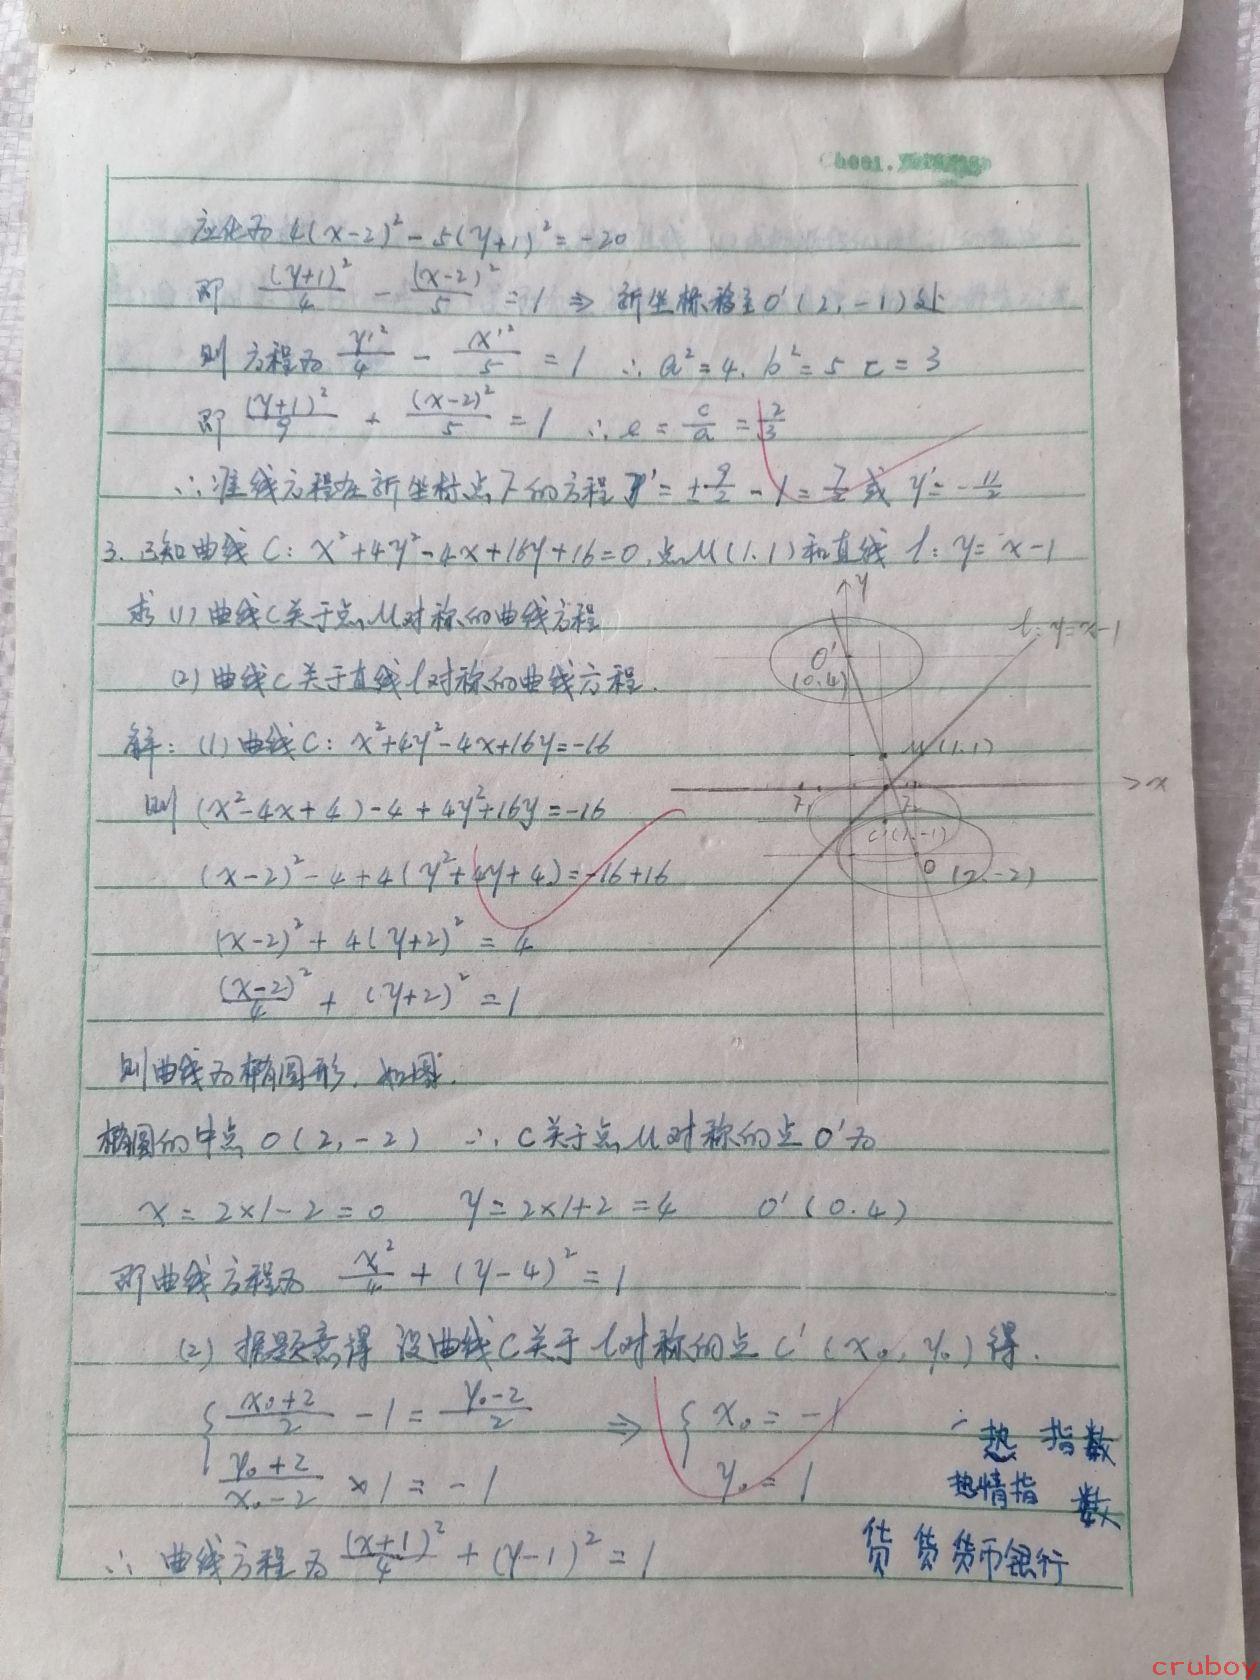 应化为 4(x-2)²-5(y+1)²=-20
即 (y+1)²/4 - (x-2)²/5 =1 ⇒ 新坐标移至O'(2,-1)处
则方程为 y'²/4 - x'²/5 =1 ∴a²=4, b²=5 c=3
即 (y+1)²/9 + (x-2)²/5 =1 ∴e=c/a=2/3
∴准线方程在新坐标点下的方程y'=±9/2-1=7/2或y'=-11/2
3. 已知曲线C: x²+4y²-4x+16y+16=0,点M(1.1)和直线 l: y=x-1
求(1)曲线C关于点M对称的曲线方程
(2)曲线C关于直线l对称的曲线方程.
解: (1)曲线C: x²+4y²-4x+16y=-16
则 (x²-4x+4)-4+4y²+16y=-16
(x-2)²-4+4(y²+4y+4)=-16+16
(x-2)²+4(y+2)²=4
(x-2)²/4+(y+2)²=1
则曲线为椭圆形, 如图.
椭圆的中点O(2,-2) ∴C关于点M对称的点O'为
x=2×1-2=0 y=2×1+2=4 O'(0.4)
即曲线方程为 x²/4+(y-4)²=1
(2)据题意得 设曲线C关于l对称的点C'(x₀,y₀)得.
{ (x₀+2)/2 -1=(y₀-2)/2 ⇒ { x₀=-1
(y₀+2)/(x₀-2) ×1=-1 y₀=1
∴曲线方程为 (x+1)²/4+(y-1)²=1
y
l: y=x-1
O'
(0.4)
M(1.1)
x
F₁
C'(1,-1)
O (2,-2)
热 指数
热情指 数
货 货 货币银行
cruboy